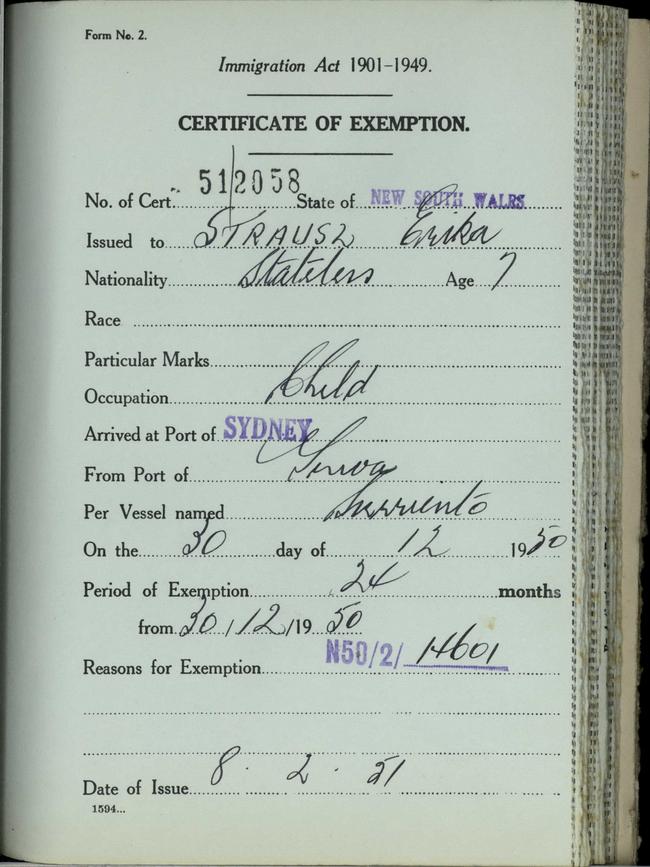 Form No. 2.
Immigration Act 1901-1949.
CERTIFICATE OF EXEMPTION.
No. of Cert. 512058 State of NEW SOUTH WALES
Issued to STRAUSZ Erika
Nationality Stateless Age 7
Race
Particular Marks
Occupation Child
Arrived at Port of SYDNEY
From Port of Genoa
Per Vessel named Surriento
On the 30 day of 12 1950
Period of Exemption 24 months
from 30/12/1950
N50/2/14601
Reasons for Exemption
Date of Issue 8.2.51
1594...